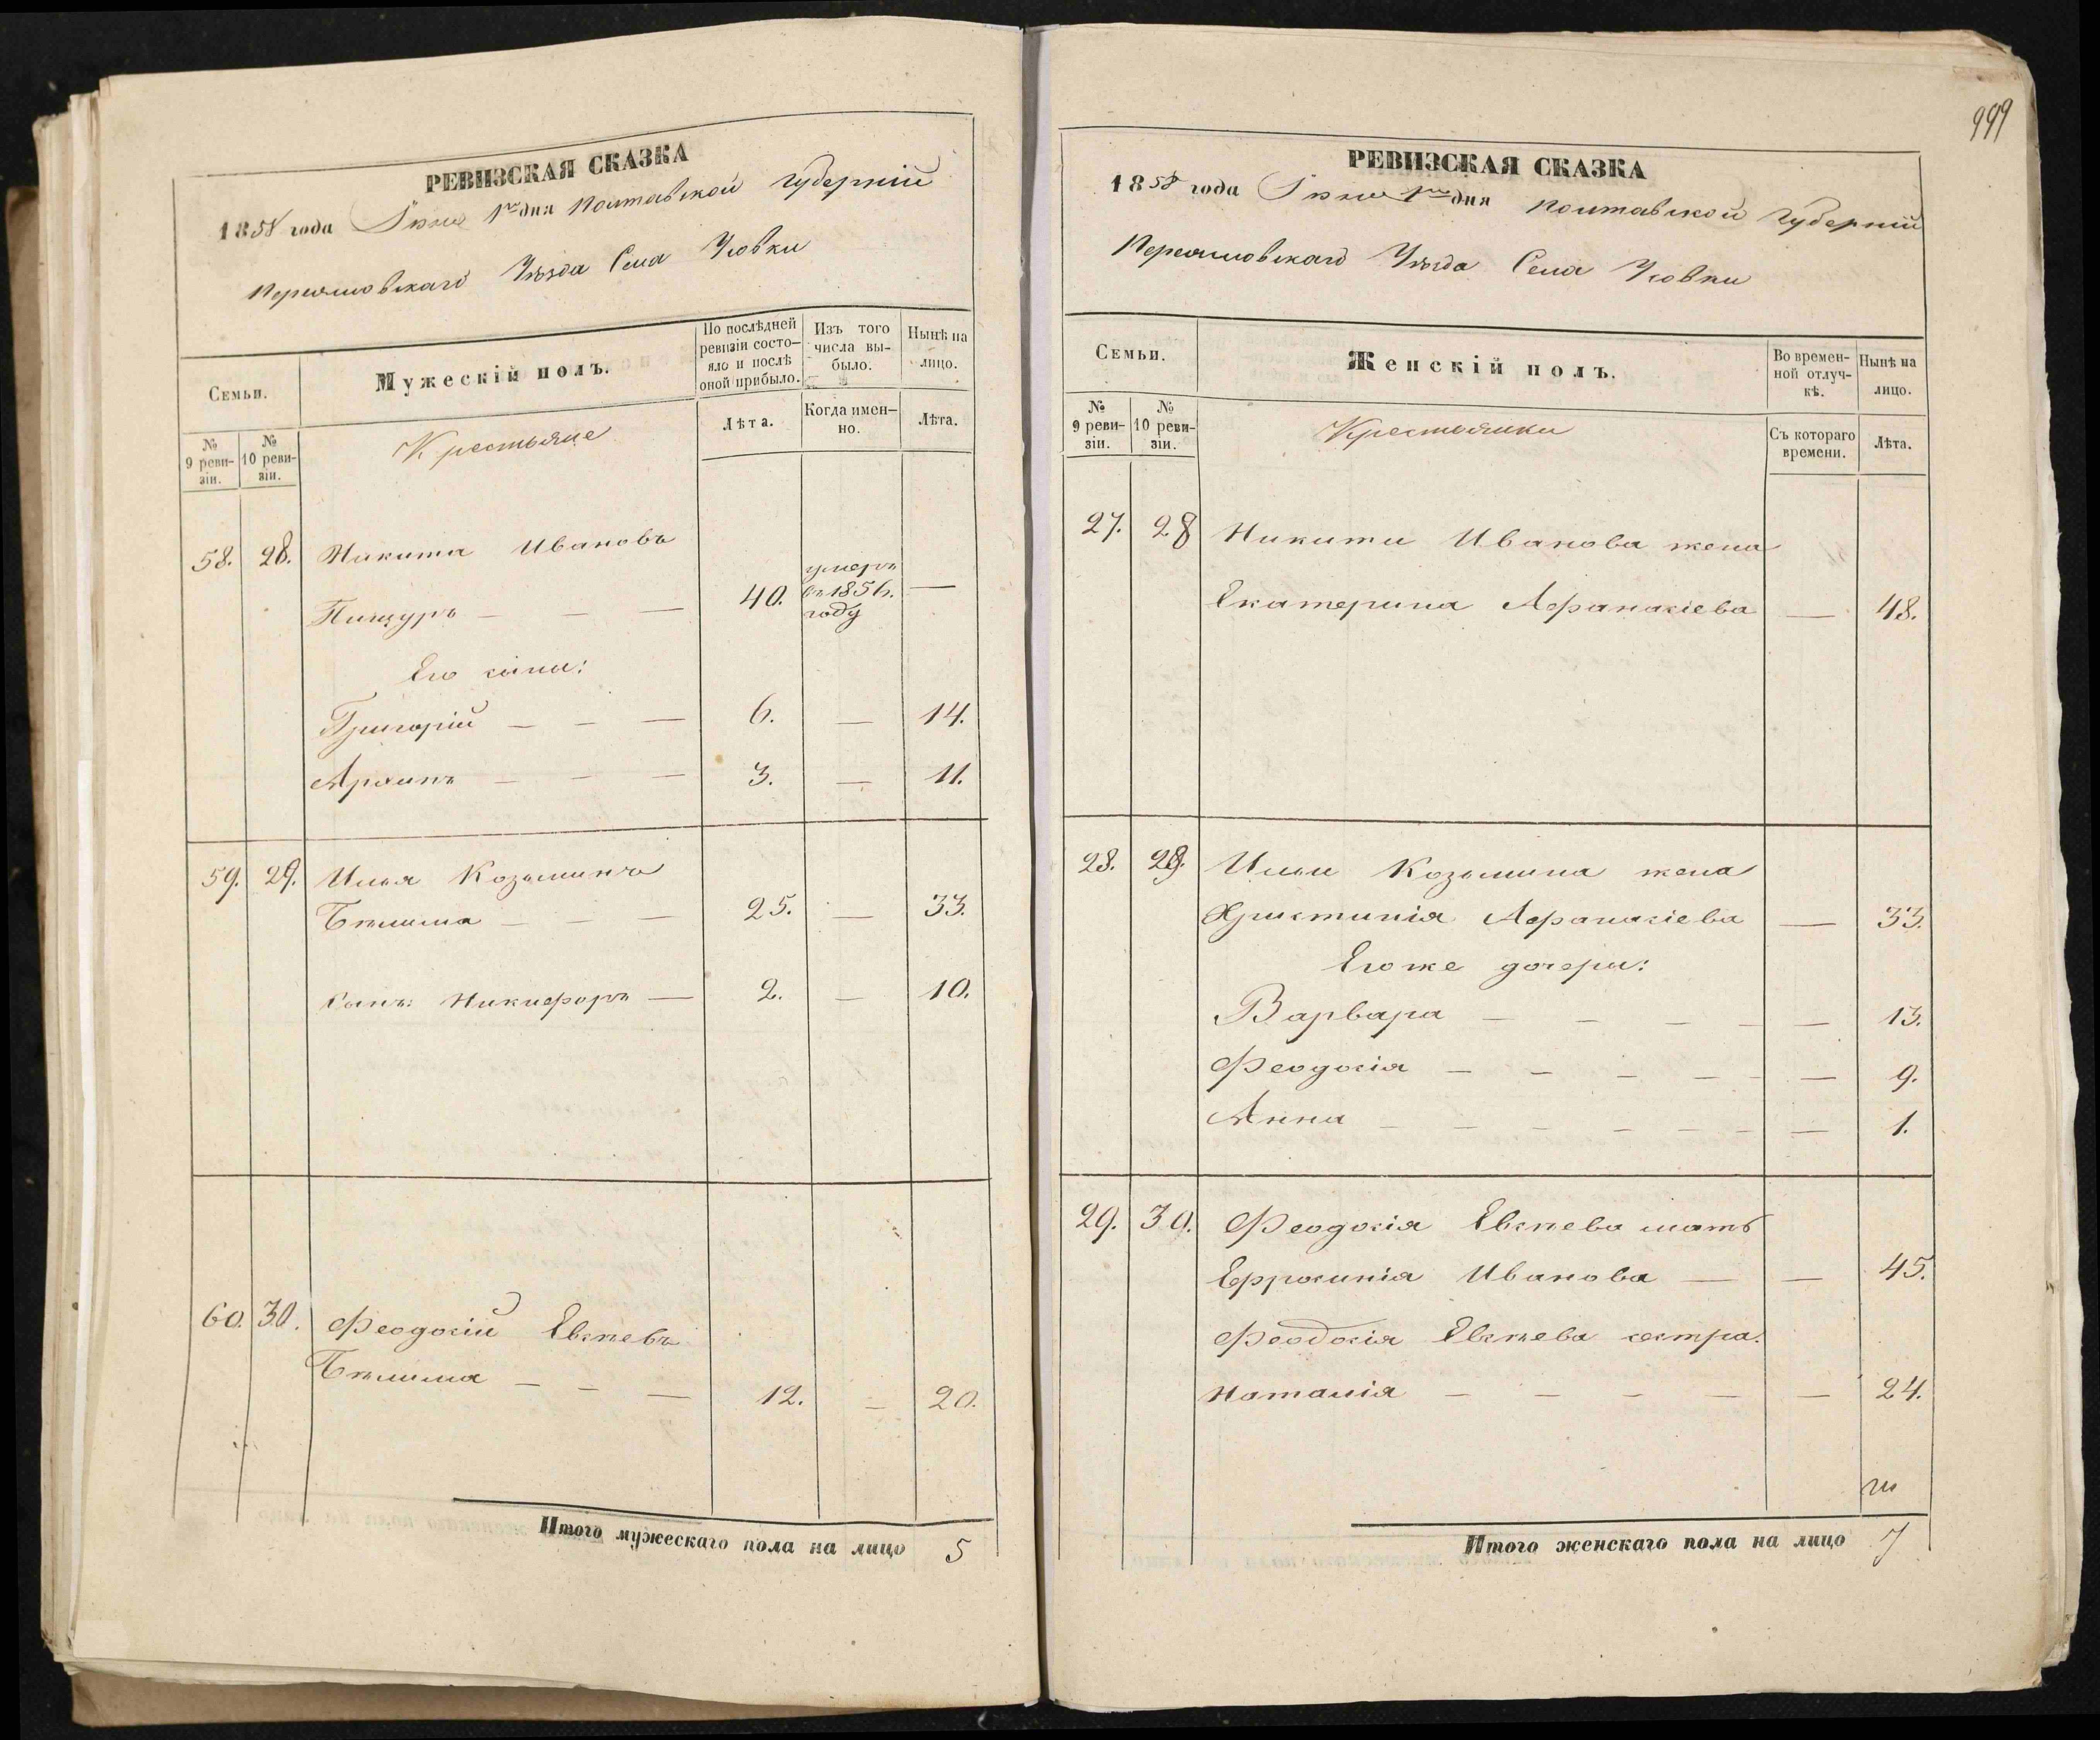 РЕВИЗСКАЯ СКАЗКА
1858 года Іюня 1го дня Полтавской Губерніи
Переяславскаго Уѣзда Села Усовки
Семьи.
Мужескій полъ.
По послѣдней ревизіи состояло и послѣ оной прибыло.
Изъ того числа выбыло.
Нынѣ на лицо.
№ 9 ревизіи.
№ 10 ревизіи.
Крестьяне
Лѣта.
Когда именно.
Лѣта.
58. 28. Никита Ивановъ
Пинчуръ — — — 40. умеръ въ 1856. году —
Его сыны:
Григорій — — — 6. — 14.
— — — 3. — 11.
59. 29. Илья Козьминъ
Бѣлима — — — 25. — 33.
Сынъ: Никифоръ — 2. — 10.
60. 30. Феодосій Евсѣевъ
Бѣлима — — — 12. — 20.
Итого мужескаго пола на лицо 5
999
РЕВИЗСКАЯ СКАЗКА
1858 года Іюня 1го дня Полтавской Губерніи
Переяславскаго Уѣзда Села Усовки
Семьи.
Женскій полъ.
Во временной отлучкѣ.
Нынѣ на лицо.
№ 9 ревизіи.
№ 10 ревизіи.
Крестьянки
Съ котораго времени.
Лѣта.
27. 28 Никиты Иванова жена
Екатерина Афанасіева — 48.
28. 29. Ильи Козьмина жена
Христинія Афанасіева — 33.
Его же дочери:
Варвара — — — — — 13.
Феодосія — — — — — 9.
Анна — — — — — — — 1.
29. 30. Феодосія Евсѣева мать
Ефросинія Иванова — — 45.
Феодосія Евсѣева сестра.
Наталія — — — — — 24.
Итого женскаго пола на лицо 7